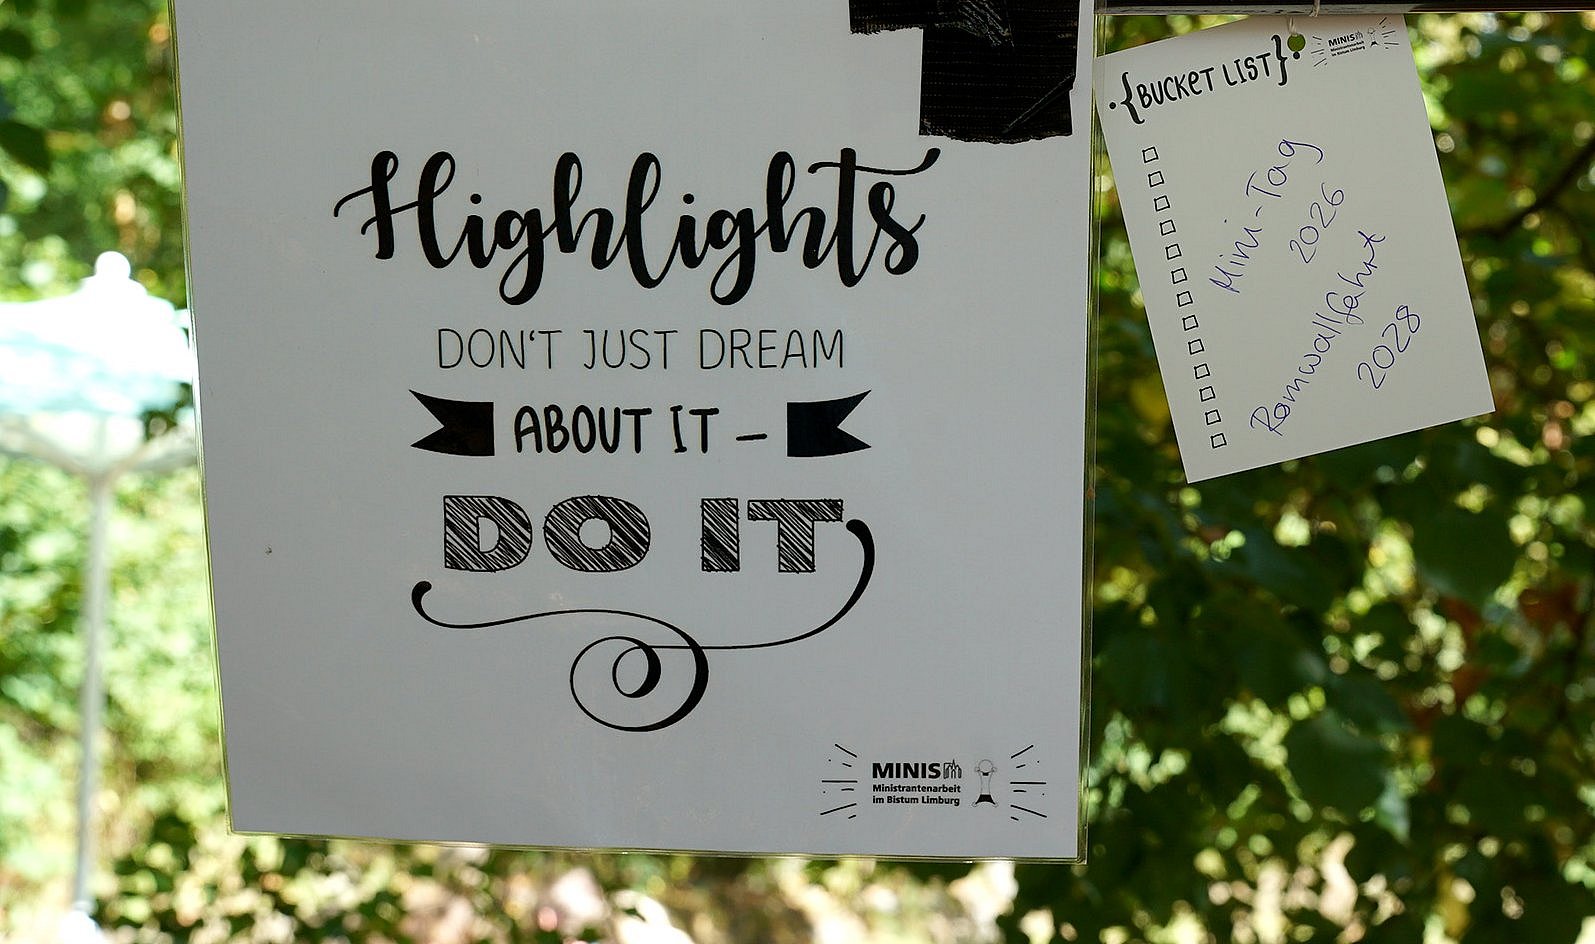 Highlights
DON'T JUST DREAM
ABOUT IT –
DO IT
MINIS
Ministrantenarbeit
im Bistum Limburg
{BUCKET LIST}
MINIS
Ministrantenarbeit
im Bistum Limburg
Mini-Tag
2026
Romwallfahrt
2028